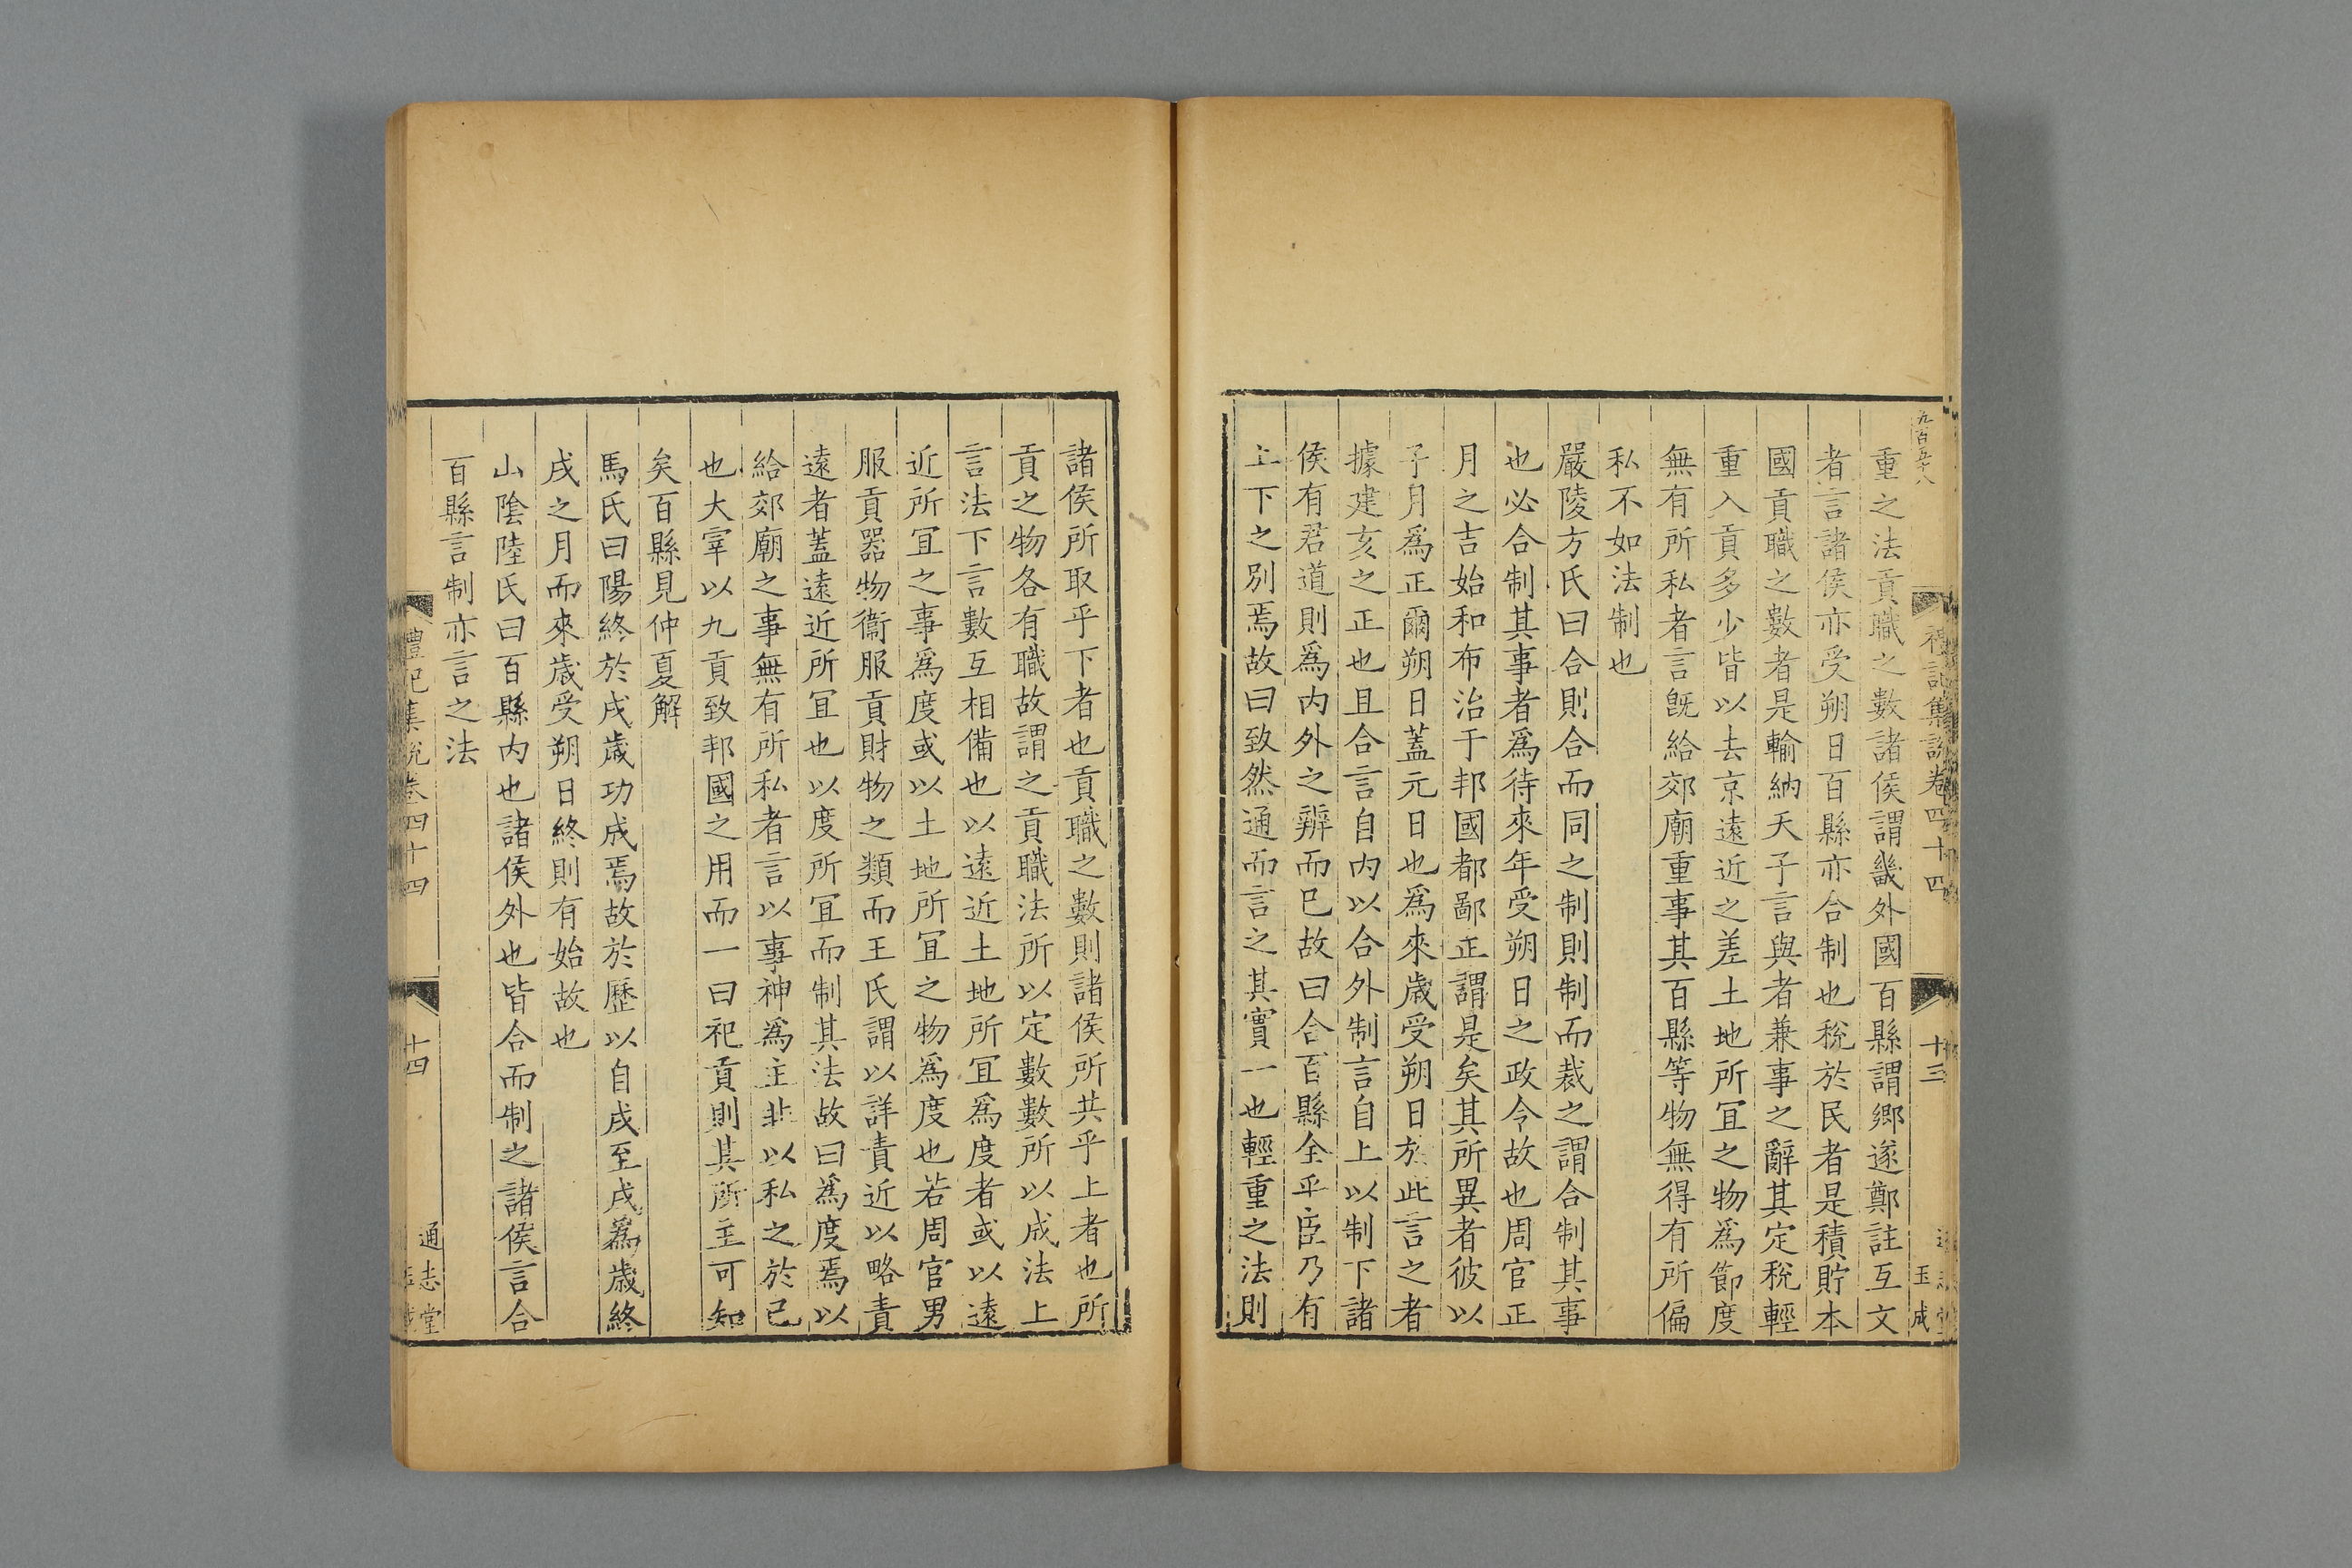 九百五十八
禮記集說卷四十四
十三
玉成
重之法貢職之數諸侯謂畿外國百縣謂鄉遂鄭註互文
者言諸侯亦受朔日百縣亦合制也稅於民者是積貯本
國貢職之數者是輸納天子言與者兼事之辭其定稅輕
重入貢多少皆以去京遠近之差土地所宜之物爲節度
無有所私者言旣給郊廟重事其百縣等物無得有所偏
私不如法制也
嚴陵方氏曰合則合而同之制則制而裁之謂合制其事
也必合制其事者爲待來年受朔日之政令故也周官正
月之吉始和布治于邦國都鄙正謂是矣其所異者彼以
子月爲正爾朔日蓋元日也爲來歲受朔日於此言之者
據建亥之正也且合言自内以合外制言自上以制下諸
侯有君道則爲内外之辨而已故曰合百縣全乎臣乃有
上下之別焉故曰致然通而言之其實一也輕重之法則
諸侯所取乎下者也貢職之數則諸侯所共乎上者也所
貢之物各有職故謂之貢職法所以定數數所以成法上
言法下言數互相備也以遠近土地所宜爲度者或以遠
近所宜之事爲度或以土地所宜之物爲度也若周官男
服貢器物衞服貢財物之類而王氏謂以詳責近以略責
遠者蓋遠近所宜也以度所宜而制其法故曰爲度焉以
給郊廟之事無有所私者言以事神爲主非以私之於已
也大宰以九貢致邦國之用而一曰祀貢則其所主可知
矣百縣見仲夏解
馬氏曰陽終於戌歲功成焉故於歷以自戌至戌爲歲終
戌之月而來歲受朔日終則有始故也
山陰陸氏曰百縣内也諸侯外也皆合而制之諸侯言合
百縣言制亦言之法
禮記集說卷四十四
十四
通志堂